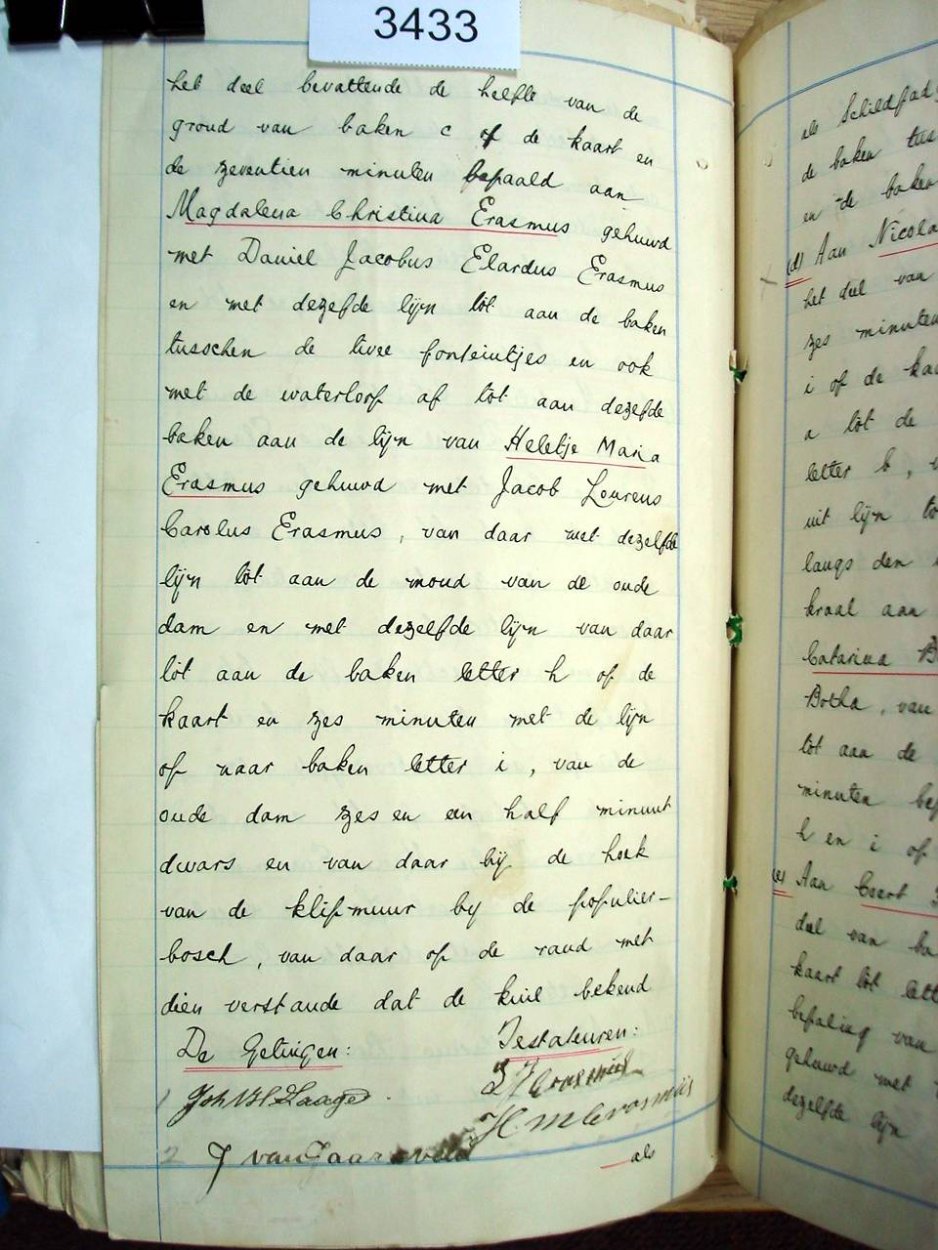 3433
het deel bevattende de helfte van de
groud van baken c of de kaart en
de zeventien minuten bepaald aan
Magdalena Christina Erasmus gehuwd
met Daniel Jacobus Elardus Erasmus
en met dezefde lijn tot aan de baken
tusschen de twee fonteintjes en ook
met de waterloop af tot aan dezefde
baken aan de lijn van Heletje Maria
Erasmus gehuwd met Jacob Lourens
Carolus Erasmus, van daar met dezelfde
lijn tot aan de mond van de oude
dam en met dezelfde lijn van daar
tot aan de baken letter h op de
kaart en zes minuten met de lijn
op naar baken letter i, van de
oude dam zes en een half minuut
dwars en van daar bij de hoek
van de klipmuur by de populier-
bosch, van daar op de rand met
dien verstande dat de kuil bekend
De Getuigen: Testateuren:
1
H M Erasmus
2 J van Jaarsveld
als
als Schildpad
de baken tus
en de baken
(d) Aan Nicola
het deel van
zes minuten
i of de ka
a tot de
letter b,
uit lijn to
langs den
kraal aan
Catarina B
Botha, van
tot aan de
minuten bep
h en i op
(e) Aan Geert
deel van ba
kaart tot lett
bepaling van
gehuwd met
dezelfde lijn